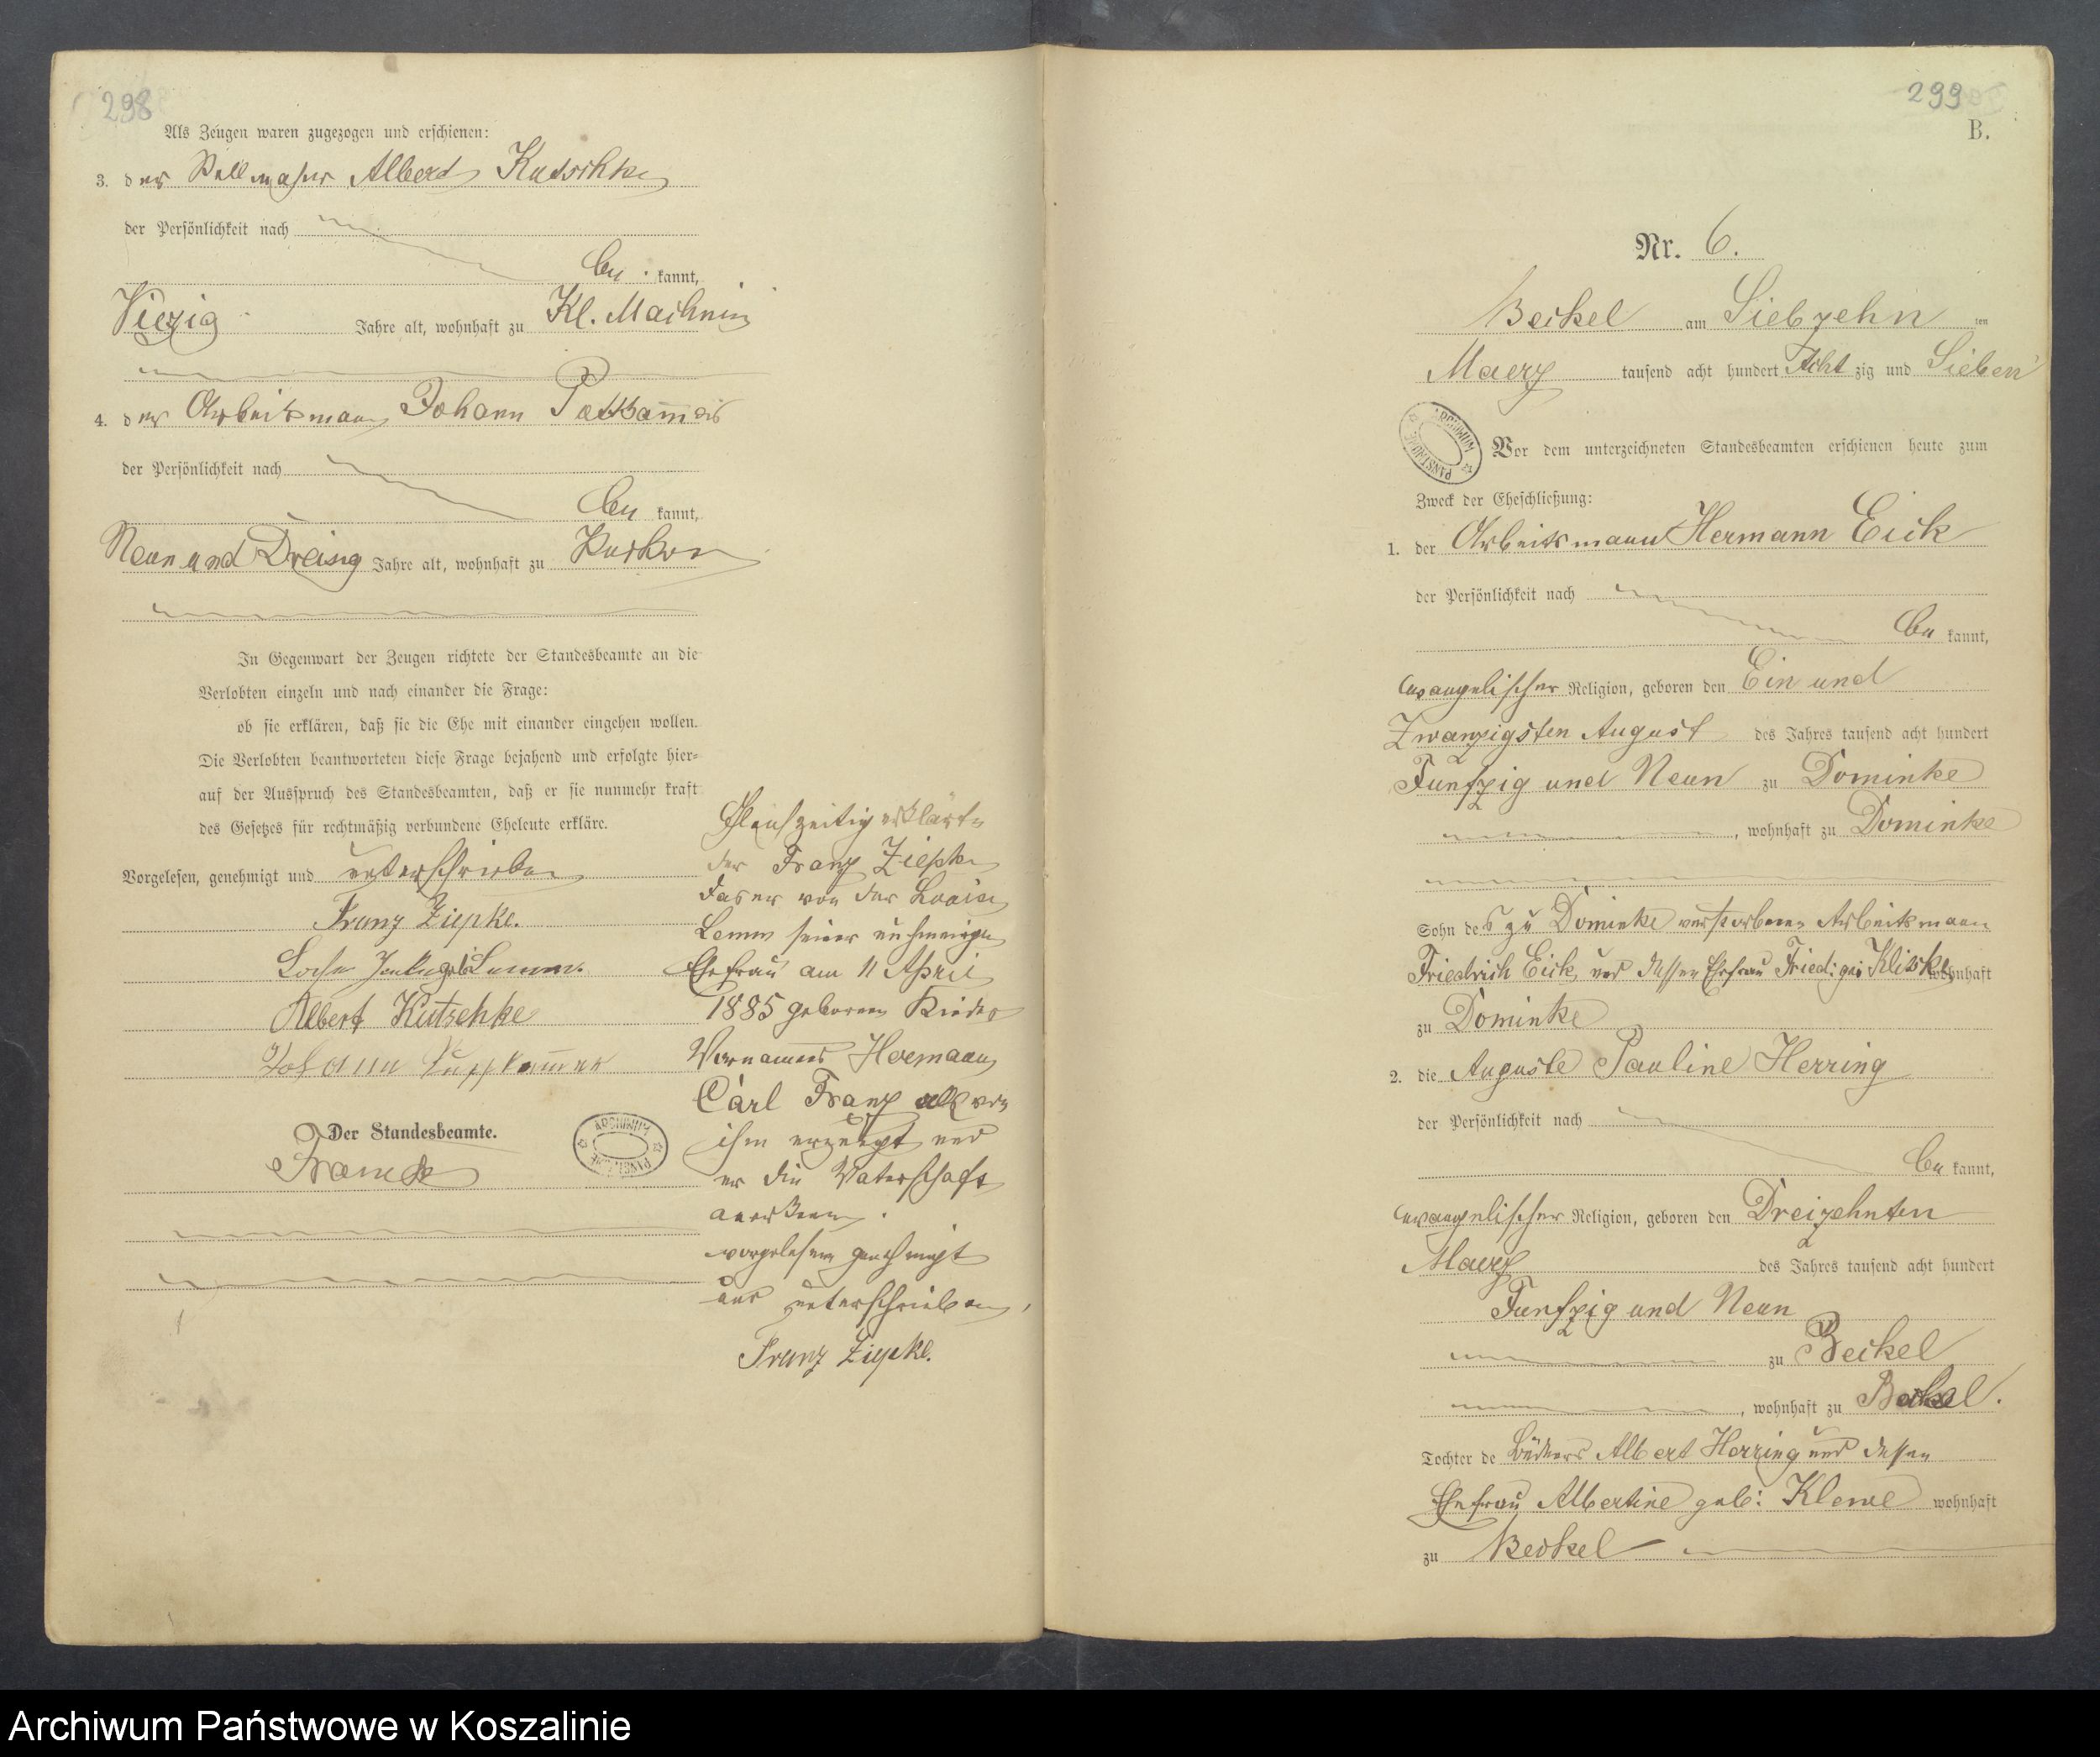 298
Als Zeugen waren zugezogen und erschienen:
3. der Albert Kutschke
der Persönlichkeit nach
be kannt,
Vierzig Jahre alt, wohnhaft zu Kl. Machmin
4. der Arbeitsmann Johann
der Persönlichkeit nach
be kannt,
Neun und Dreisig Jahre alt, wohnhaft zu
In Gegenwart der Zeugen richtete der Standesbeamte an die
Verlobten einzeln und nach einander die Frage:
ob sie erklären, daß sie die Ehe mit einander eingehen wollen.
Die Verlobten beantworteten diese Frage bejahend und erfolgte hier-
auf der Ausspruch des Standesbeamten, daß er sie nunmehr kraft
des Gesetzes für rechtmäßig verbundene Eheleute erkläre.
Vorgelesen, genehmigt und unterschrieben
Franz Ziepke.
Albert Kutschke
Johann
Der Standesbeamte.
ARCHIWUM PAŃSTWOWE
Gleichzeitig erklärte
der Franz Ziepke
das er von der
Lemm seiner nunmehrigen
Ehefrau am 11 April
1885 geborene Kinde
Vornamens Hermann
Carl Franz als von
ihm erzeugt und
er die Vaterschaft
anerkenne.
vorgelesen genehmigt
und unterschrieben,
Franz Ziepke.
299
B.
Nr. 6.
Beckel am Siebzehn ten
Maerz tausend acht hundert Acht zig und Sieben
ARCHIWUM PAŃSTWOWE
Vor dem unterzeichneten Standesbeamten erschienen heute zum
Zweck der Eheschließung:
1. der Arbeitsmann Hermann Eick
der Persönlichkeit nach
be kannt,
evangelischer Religion, geboren den Ein und
Zwanzigsten August des Jahres tausend acht hundert
Funfzig und Neun zu Dominke
, wohnhaft zu Dominke
Sohn des zu Dominke verstorbenen Arbeitsmann
Friedrich Eick und dessen Ehefrau Fried: geb: wohnhaft
zu Dominke
2. die Auguste Pauline Herring
der Persönlichkeit nach
be kannt,
evangelischer Religion, geboren den Dreizehnten
Maerz des Jahres tausend acht hundert
Funfzig und Neun
zu Beckel
, wohnhaft zu Beckel.
Tochter de Büdners Albert Herring und dessen
Ehefrau Albertine geb: Klewe wohnhaft
zu Beckel
Archiwum Państwowe w Koszalinie